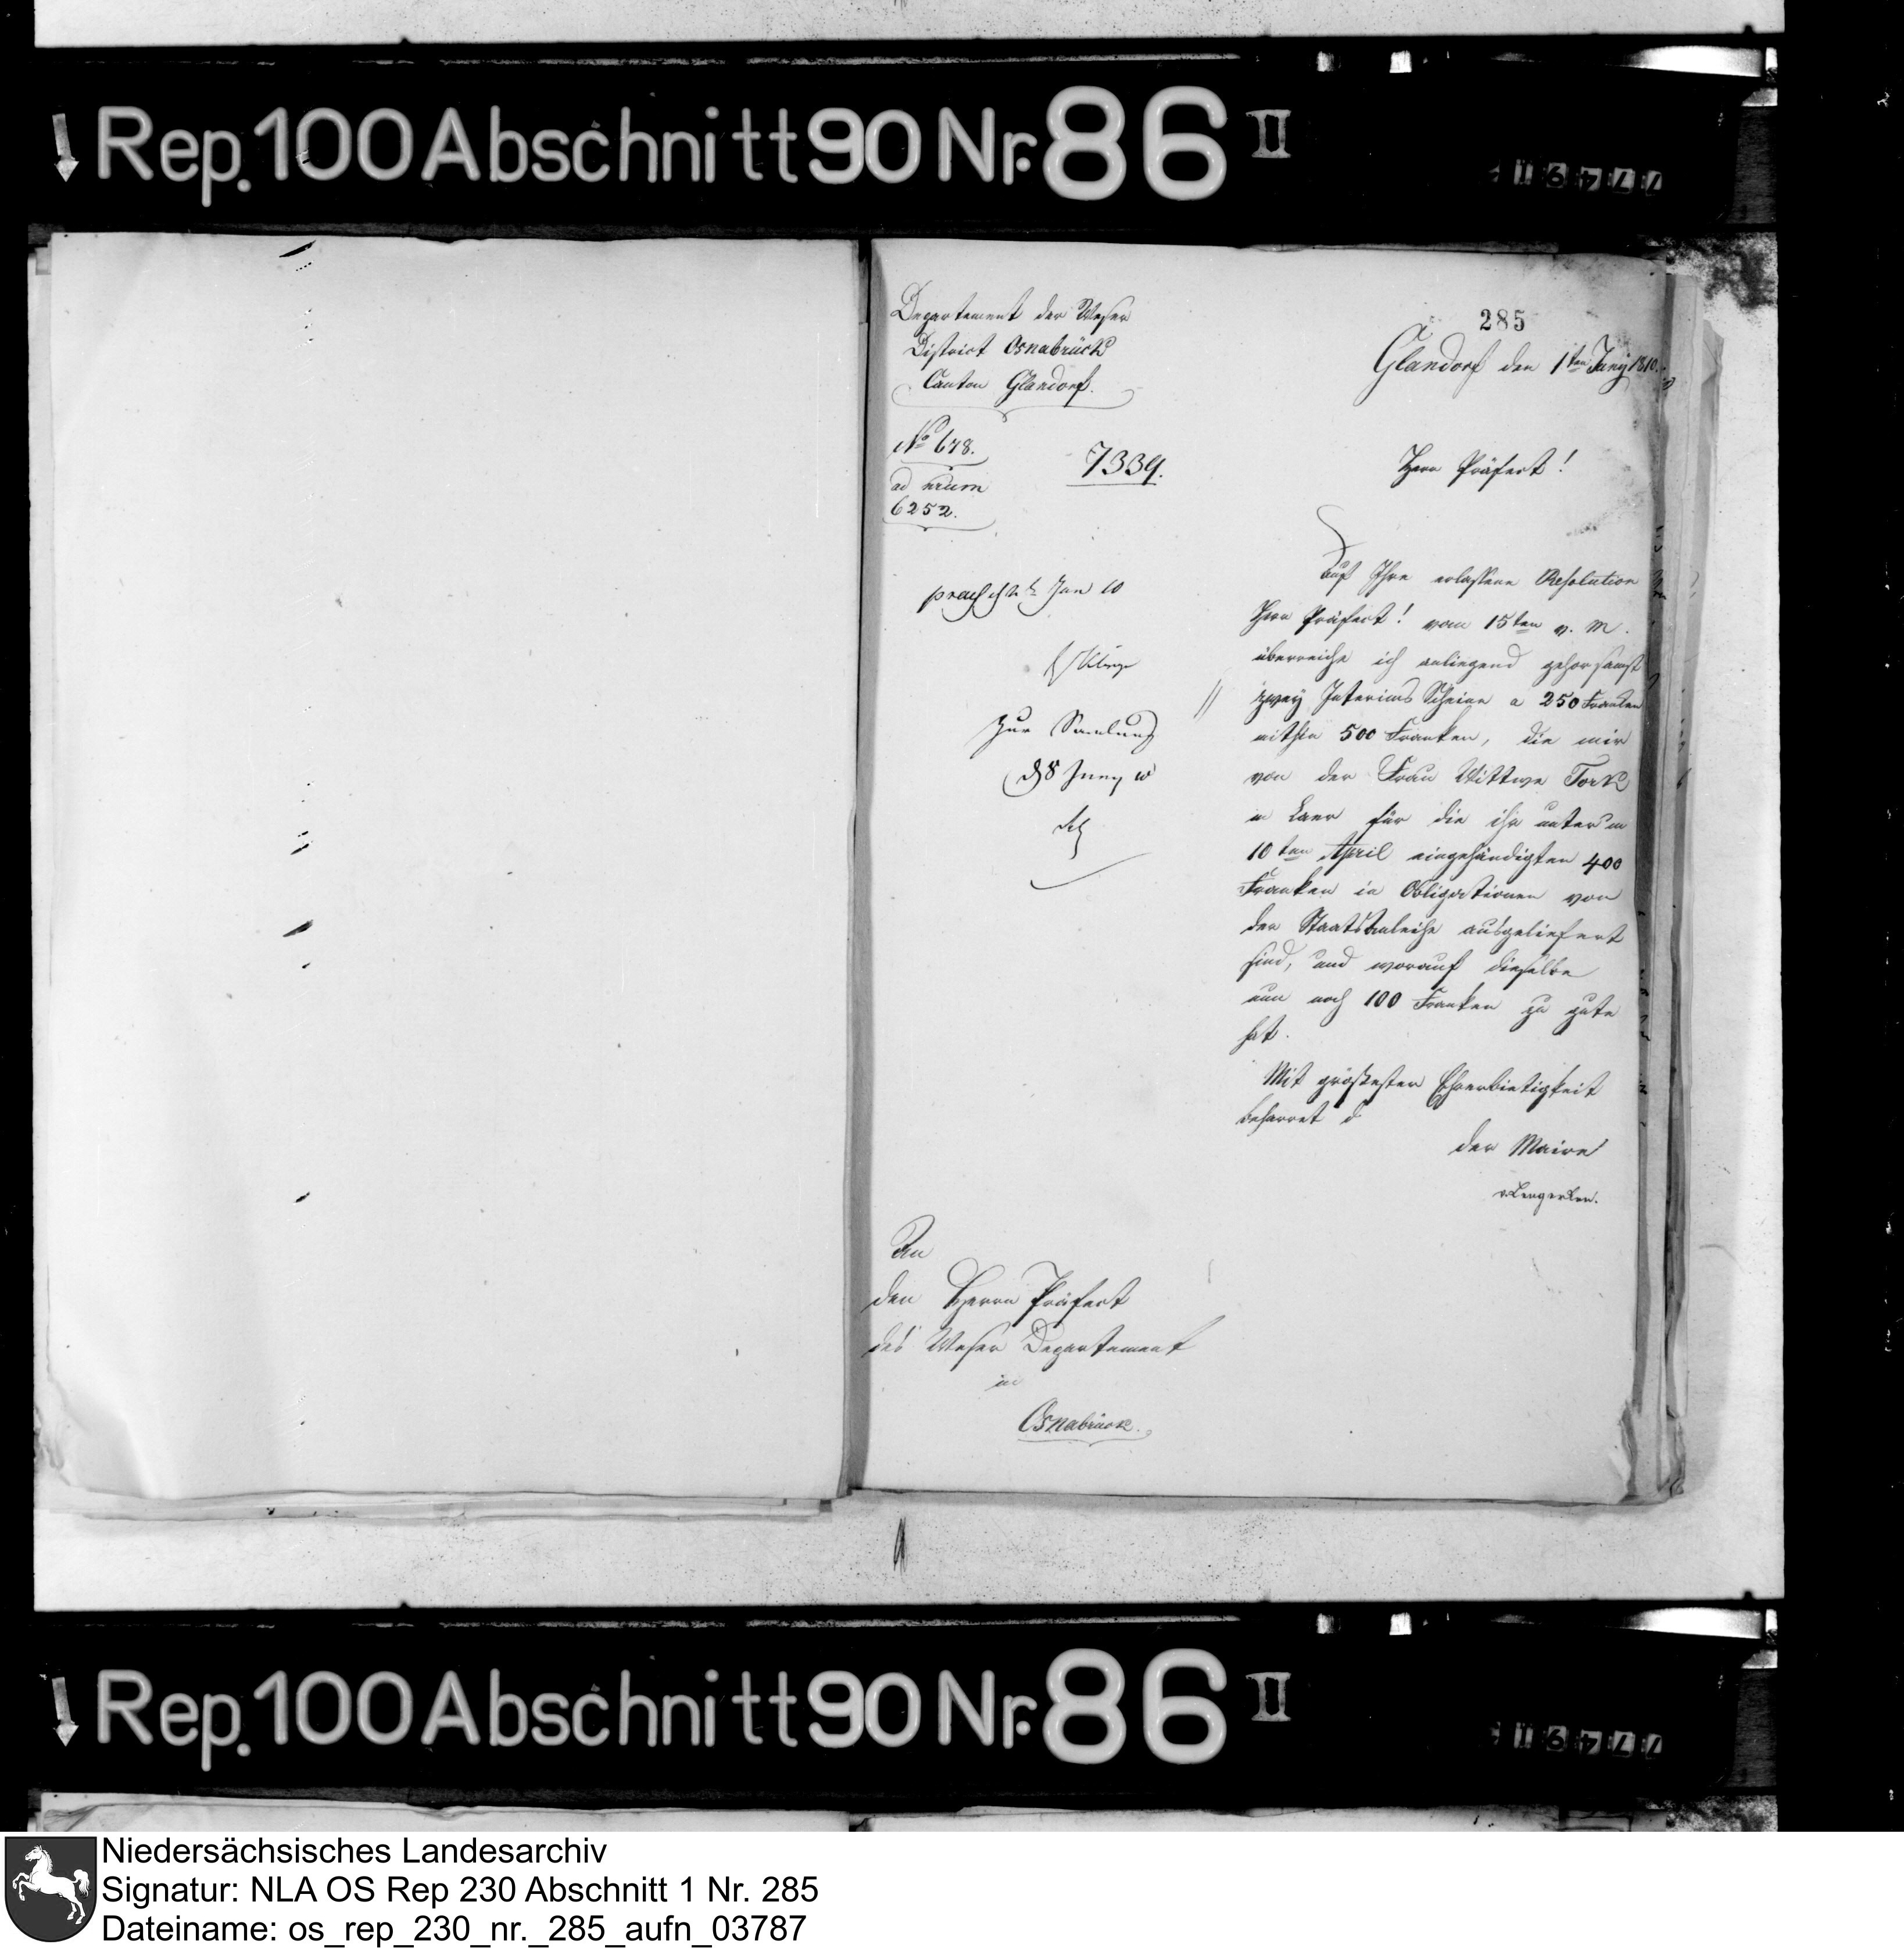 Rep. 100 Abschnitt 90 Nr. 86 II
Departement der Weser
District Osnabrück
Canton Glandorf.
No 678.
ad num
6252.
7339.
285
Glandorf den 1ten Juny 1810.
Herr Präfect!
Auf Ihre erlassene Resolution
Herr Präfect! vom 15ten v. M.
überreiche ich anliegend gehorsamst
zwey Interims Scheine a 250 Franken
mithin 500 Franken, die mir
von der Frau Wittwe Tork
in Laer für die ihr unter'm
10ten April eingehändigten 400
Franken in Obligationen von
der Staats Anleihe ausgeliefert
sind, und worauf dieselbe
nun noch 100 Franken zu gute
hat.
Mit größester Ehrerbietigkeit
beharret
der Maire
v Lengerken.
Jun 10
Zur Samlung
d 8 Juny 10
An
den Herrn Präfect
des Weser Departement
in
Osnabrück.
Rep. 100 Abschnitt 90 Nr. 86 II
Niedersächsisches Landesarchiv
Signatur: NLA OS Rep 230 Abschnitt 1 Nr. 285
Dateiname: os_rep_230_nr._285_aufn_03787